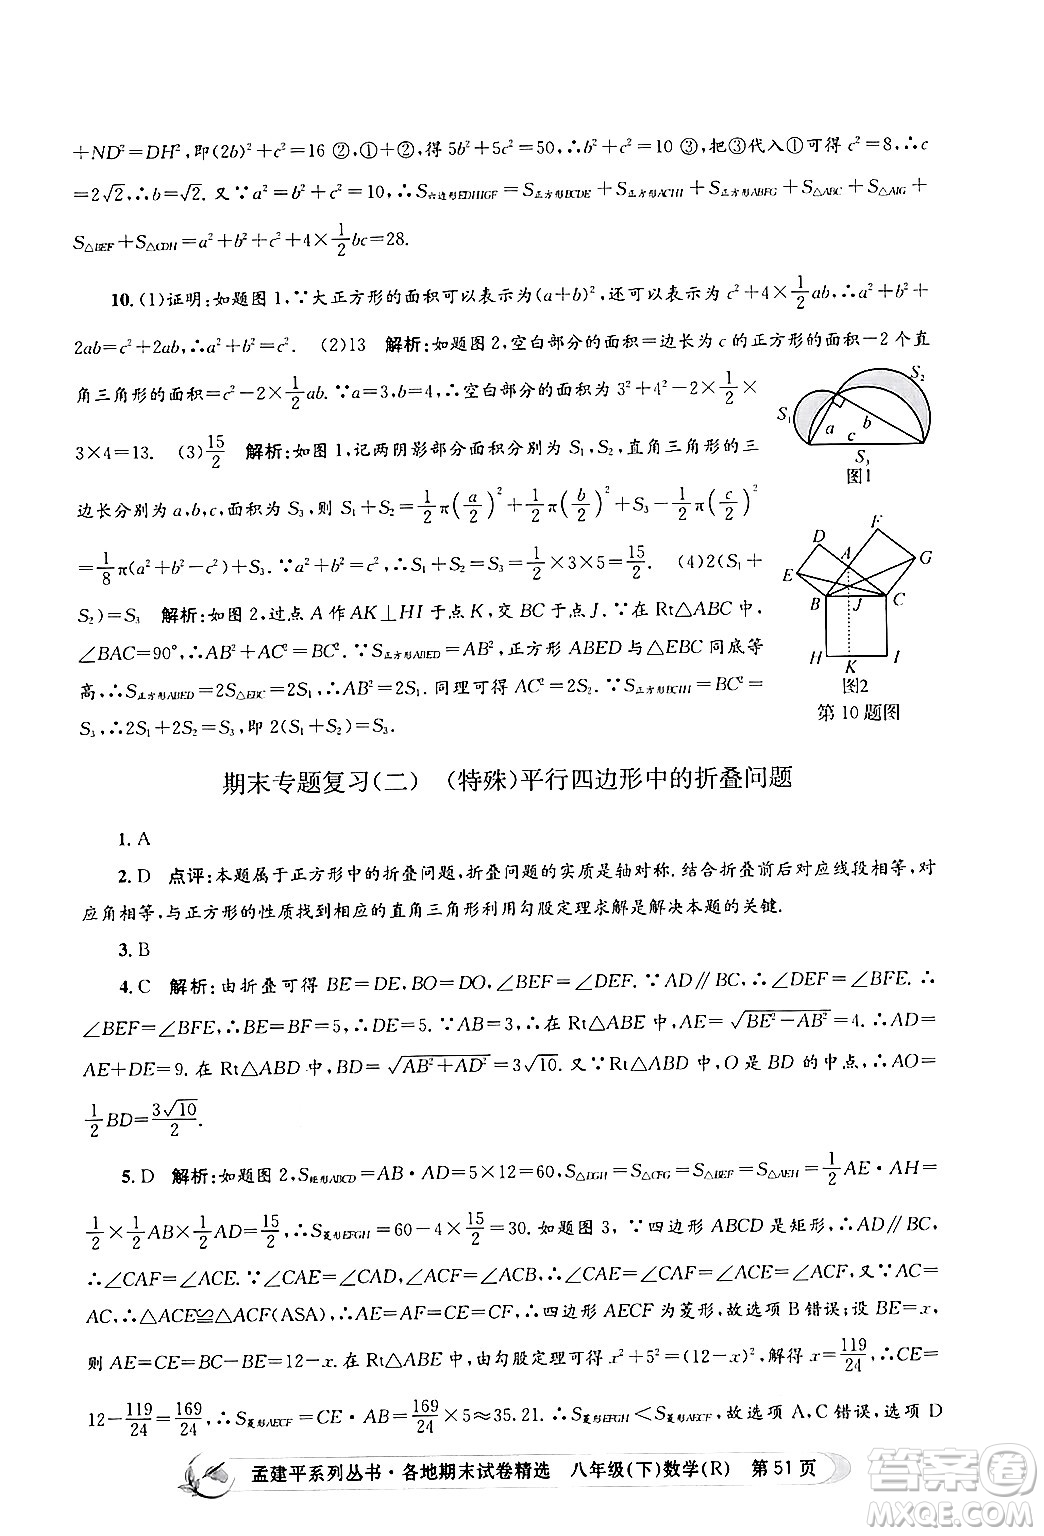 +ND²=DH²,即(2b)²+c²=16 ②,①+②,得5b²+5c²=50,∴b²+c²=10 ③,把③代入①可得c²=8,∴c
=2√2,∴b=√2. 又∵a²=b²+c²=10,∴S六边形EDHIGF=S正方形BCDE+S正方形ACHI+S正方形ABFG+S△ABC+S△AIG+
S△BEF+S△CDH=a²+b²+c²+4×1/2bc=28.
10. (1)证明:如题图1,∵大正方形的面积可以表示为(a+b)²,还可以表示为c²+4×1/2ab,∴a²+b²+
2ab=c²+2ab,∴a²+b²=c². (2)13 解析:如题图2,空白部分的面积=边长为c的正方形的面积-2个直
角三角形的面积=c²-2×1/2ab. ∵a=3,b=4,∴空白部分的面积=3²+4²-2×1/2×
3×4=13. (3)15/2 解析:如图1,记两阴影部分面积分别为S₁,S₂,直角三角形的三
边长分别为a,b,c,面积为S₃,则S₁+S₂=1/2π(a/2)²+1/2π(b/2)²+S₃-1/2π(c/2)²
=1/8π(a²+b²-c²)+S₃. ∵a²+b²=c²,∴S₁+S₂=S₃=1/2×3×5=15/2. (4)2(S₁+
S₂)=S₃ 解析:如图2,过点A作AK⊥HI于点K,交BC于点J. ∵在Rt△ABC中,
∠BAC=90°,∴AB²+AC²=BC². ∵S正方形ABED=AB²,正方形ABED与△EBC同底等
高,∴S正方形ABED=2S△EBC=2S₁,∴AB²=2S₁. 同理可得AC²=2S₂. ∵S正方形BCIH=BC²=
S₃,∴2S₁+2S₂=S₃,即2(S₁+S₂)=S₃.
S₁
S₂
a
b
c
S₃
图1
F
D
A
G
E
B
J
C
H
K
I
图2
第10题图
期末专题复习(二) (特殊)平行四边形中的折叠问题
1. A
2. D 点评:本题属于正方形中的折叠问题,折叠问题的实质是轴对称. 结合折叠前后对应线段相等,对
应角相等,与正方形的性质找到相应的直角三角形利用勾股定理求解是解决本题的关键.
3. B
4. C 解析:由折叠可得BE=DE,BO=DO,∠BEF=∠DEF. ∵AD∥BC,∴∠DEF=∠BFE. ∴
∠BEF=∠BFE,∴BE=BF=5,∴DE=5. ∵AB=3,∴在Rt△ABE中,AE=√(BE²-AB²)=4. ∴AD=
AE+DE=9. 在Rt△ABD中,BD=√(AB²+AD²)=3√10. 又∵在Rt△ABD中,O是BD的中点,∴AO=
1/2BD=3√10/2.
5. D 解析:如题图2,S矩形ABCD=AB·AD=5×12=60,S△DGH=S△CFG=S△BEF=S△AEH=1/2AE·AH=
1/2×1/2AB×1/2AD=15/2,∴S菱形EFGH=60-4×15/2=30. 如题图3,∵四边形ABCD是矩形,∴AD∥BC,
∴∠CAF=∠ACE. ∵∠CAE=∠CAD,∠ACF=∠ACB,∴∠CAE=∠CAF=∠ACF=∠ACE,又∵AC=
AC,∴△ACE≌△ACF(ASA),∴AE=AF=CE=CF,∴四边形AECF为菱形,故选项B错误;设BE=x,
则AE=CE=BC-BE=12-x. 在Rt△ABE中,由勾股定理可得x²+5²=(12-x)²,解得x=119/24,∴CE=
12-119/24=169/24,∴S菱形AECF=CE·AB=169/24×5≈35.21. ∴S菱形EFGH<S菱形AECF,故选项A,C错误,选项D
孟建平系列丛书·各地期末试卷精选 八年级(下)数学(R) 第51页
答案圈
MXQE.COM